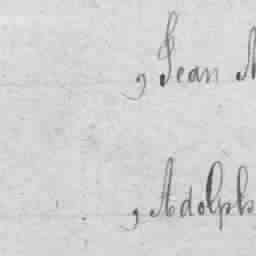 , Jean
, Adolph